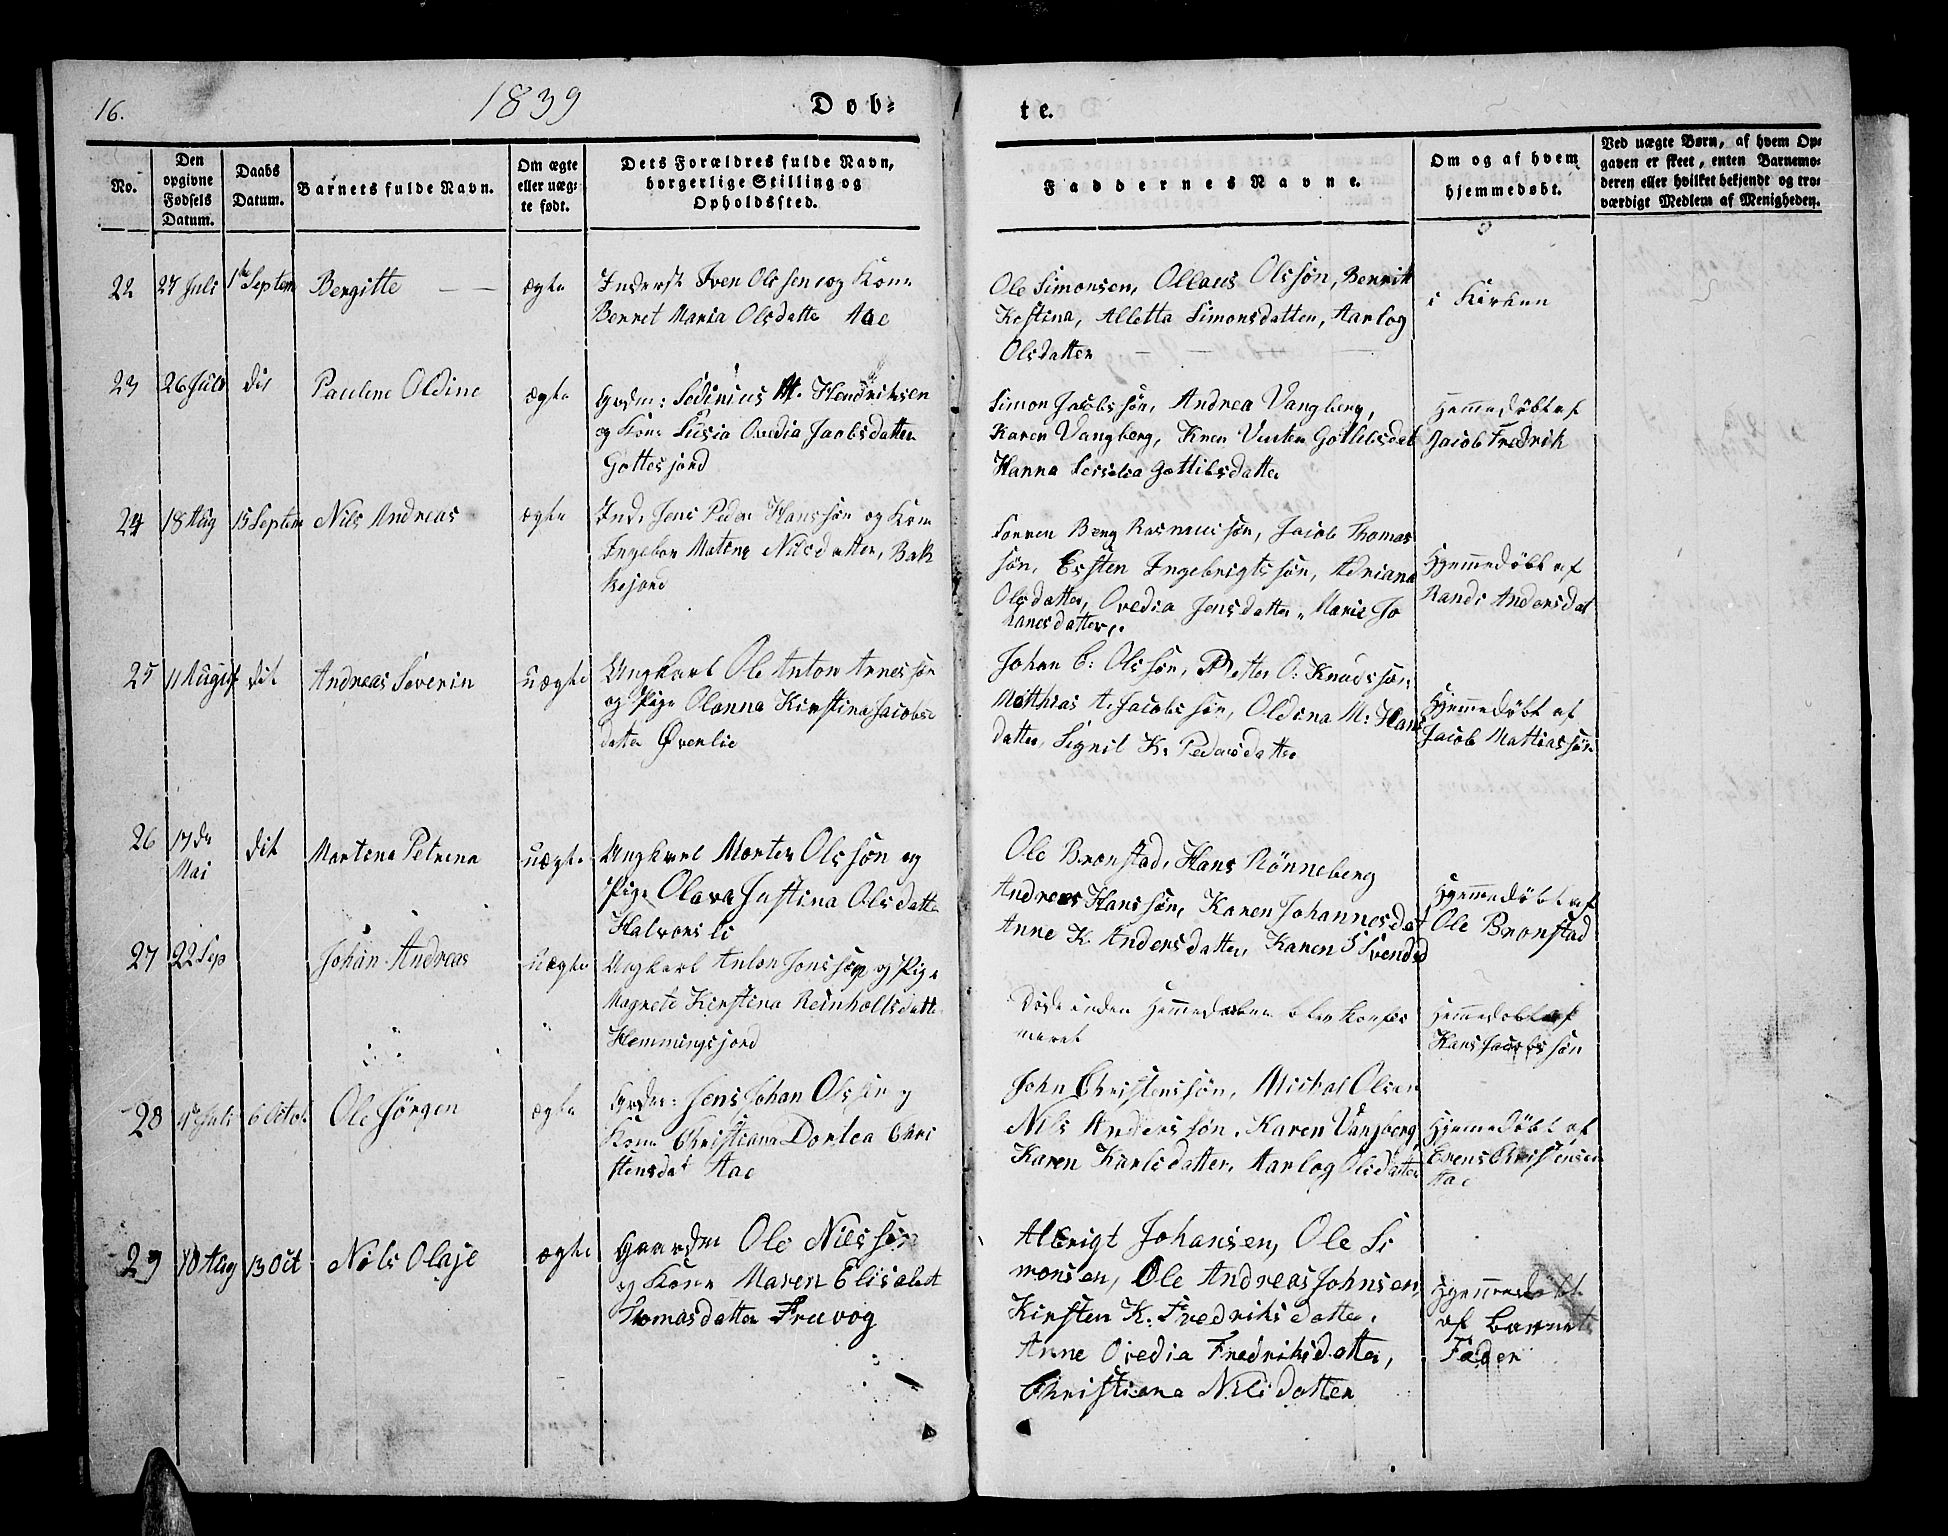 16.
1839
Døb-
te.
No.
Den
opgivne
Fødsels
Datum.
Daabs
Datum.
Barnets fulde Navn.
Om ægte
eller uæg-
te født.
Dets Forældres fulde Navn,
borgerlige Stilling og
Opholdssted.
Faddernes Navne.
Om og af hvem
hjemmedøbt.
Ved uægte Børn, af hvem Op-
gaven er skeet, enten Barnemo-
deren eller hvilket bekjendt og tro-
værdigt Medlem af Menigheden.
22
27 Juli
1ste Septem
Bergitte
ægte
Inderst Iven Olssen og Kone
Berret Maria Olsdatte Aae
Ole Simonsen, Ollaus Olssøn, Berrit
Kestina, Alletta Simonsdatten, Aarlog
Olsdatten
i Kirken
23
26 Juli
dit
Pauline Oldine
ægte
Grdm: Sedinius M. Hendriksen
og Kone Lusia Ovedia Jacobsdatten
Gottesjord
Simon Jacobssøn, Andrea Vangberg,
Karen Vangberg, Gottlibsdat
Hanna Gottibsdatten
Hemmedøbt af
Jacob Fredrik
24
18 Aug
15 Septem
Nils Andreas
ægte
Ind. Jens Peder Hanssøn og Kone
Ingebor Matena Nilsdatten, Bak
kejord
Sørren Berg Rasmussøn, Jacob Thomas
søn, Essten Ingebrigtssøn, Adriana
Olsdatten, Ovedia Jensdatten, Marie Jo
hanesdatten,
Hjemmedøbt af
Randi Andersdat
25
11 August
dit
Andreas Severin
uægte
Ungkarl Ole Anton Arnessøn
og Pige Olanna Kirstina Jacobs
datten Øvenlie
Johan C: Olssøn, Petter O: Knudssøn,
Matthias A. Jacobssøn, Oldina M: Hans
datten, Signil K: Pedersdatten
Hjemmedøbt af
Jacob Mattiassøn
26
17de
Mai
dit
Martena Petrena
uægte
Ungkarl Morten Olssøn og
Pige Olava Justina Olsdatte
Halvorsli
Ole Bronstad, Hans Rönneberg
Andreas Hanssøn, Karen Johannesdat
Anne K. Andersdatten, Karen S Svendsd
Hjemmedøbt af
Ole Bronstad
27
22 Sep
Johan Andreas
uægte
Ungkarl Anton Jonssøn og Pige
Magrete Kirstina Reinholtsdatte
Hemmingsjord
Døde inden Hemmedaaben blev Konfir
meret
Hemmedøbt af
Hans Jacobssøn
28
Juli
6 Octob
Ole Jörgen
ægte
Grdm: Jens Johan Olssen og
Kone Christiana Dortea Chri
stensdat Aae
John Christenssøn, Michal Olsen
Nils Anderssøn, Karen Vangberg,
Karen Karlsdatten, Aarlog Olsdatten
Hjemmedøbt af
Christensen
Aae
29
10 Aug
13 Oct
Nils Olaje
ægte
Gaardm Ole Nilssøn
og Kone Maren Elisabet
Tomasdatten Fruvog
Albrigt Johansen, Ole Si
monsen, Ole Andreas Johnsen,
Kirsten K. Fredriksdatte,
Anne Ovedia Fredriksdatten,
Christiana Nilsdatten
Hjemmedøbt
af Barnets
Fader